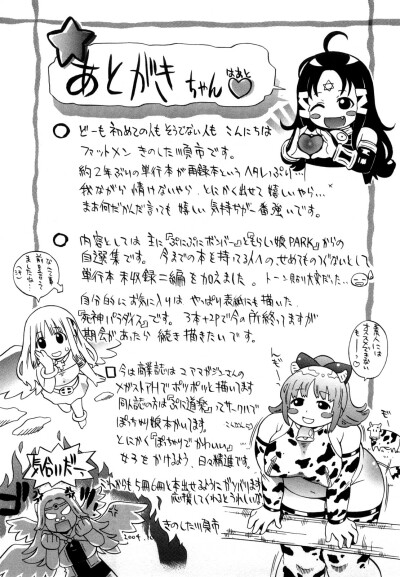 あとがきちゃん
はあと
どーも初めての人もそうでない人も こんにちは
ファットメン きのした順市です。
約2年ぶりの単行本が再録本というヘタレぶり…!
我ながら情けないやら、とにかく出せて嬉しいやら…
まぁ何だかんだ言っても嬉しい気持ちが一番強いです。
内容としては主に『ぷにぷにボンバー』と『もらい娘PARK』からの
自選集です。今までの本を持てる人へのせめてものつぐないとして
単行本未収録=編を加えました。トーン貼り大変だった…
自分的にお気に入りは やっぱり表紙にも描いた
『死神パラダイス』です。3本+2Pで今の所終ってますが
機会があったら 続き描きたいです。
今は商業誌は コアマガジンさんの
メガストアHでポツポツと描いてます
同人誌の方は『ぷに道発』ってサークルで
ぽっちゃり娘本かいてます。
とにかく『ぽっちゃりでかわいい』
女子をかけるよう、日々精進です。
これからも5冊6冊と本出せるようにガンバリます
応援してくれるとうれしいな
きのした順市
2004.10